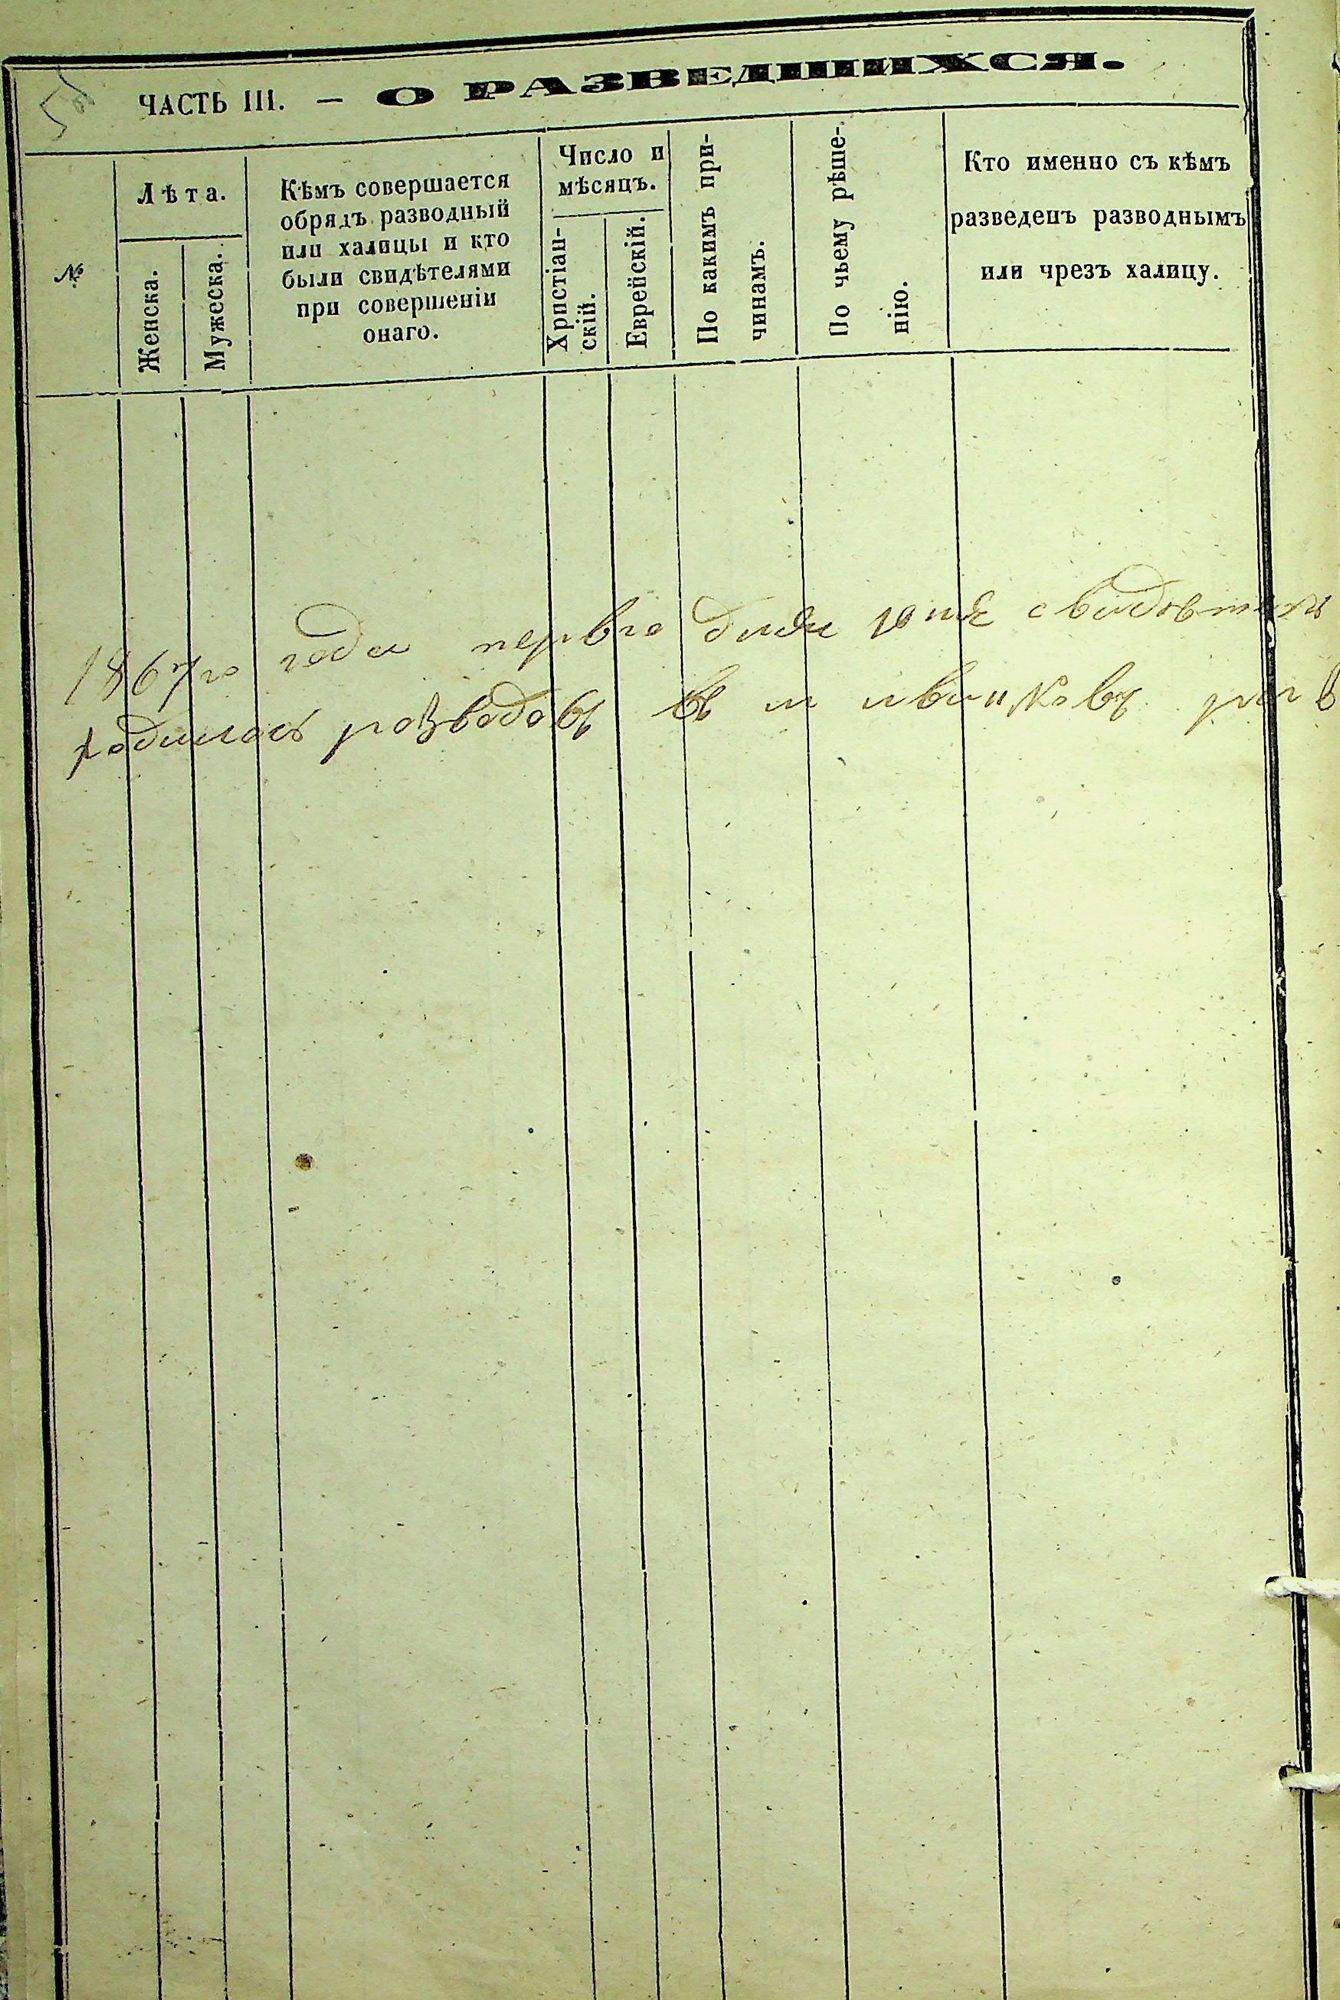 ЧАСТЬ III. — О РАЗВЕДШИХСЯ.
№
Лѣта.
Женска.
Мужеска.
Кѣмъ совершается
обрядъ разводный
или халицы и кто
были свидѣтелями
при совершеніи
онаго.
Число и
мѣсяцъ.
Христіан-
скій.
Еврейскій.
По какимъ при-
чинамъ.
По чьему рѣше-
нію.
Кто именно съ кѣмъ
разведенъ разводнымъ
или чрезъ халицу.
1867го года перваго
разводовъ въ м Ивонковъ